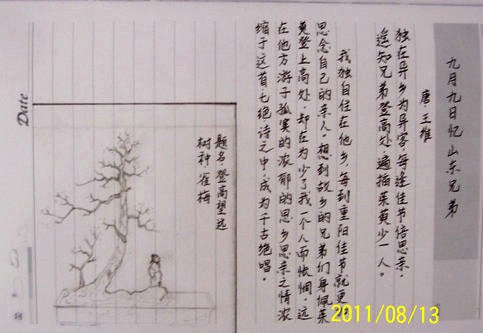 九月九日忆山东兄弟
唐·王维
独在异乡为异客,每逢佳节倍思亲。
遥知兄弟登高处,遍插茱萸少一人。
我独自住在他乡,每到重阳佳节就更
思念自己的亲人。想到故乡的兄弟们身佩茱
萸登上高处,却在为少了我一个人而怅惘。远
在他方游子孤寞的浓郁的思乡思亲之情浓
缩于这首七绝诗之中,成为千古绝唱。
题名:登高望远
树种:雀梅
Date
2011/08/13